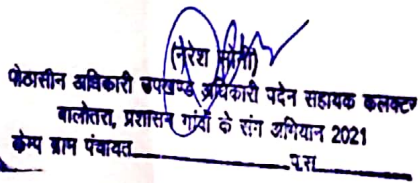 (नरेश सोनी)
पीठासीन अधिकारी उपखण्ड अधिकारी पदेन सहायक कलक्टर
बालोतरा, प्रशासन गांवों के संग अभियान 2021
केम्प ग्राम पंचायत____________प.स.